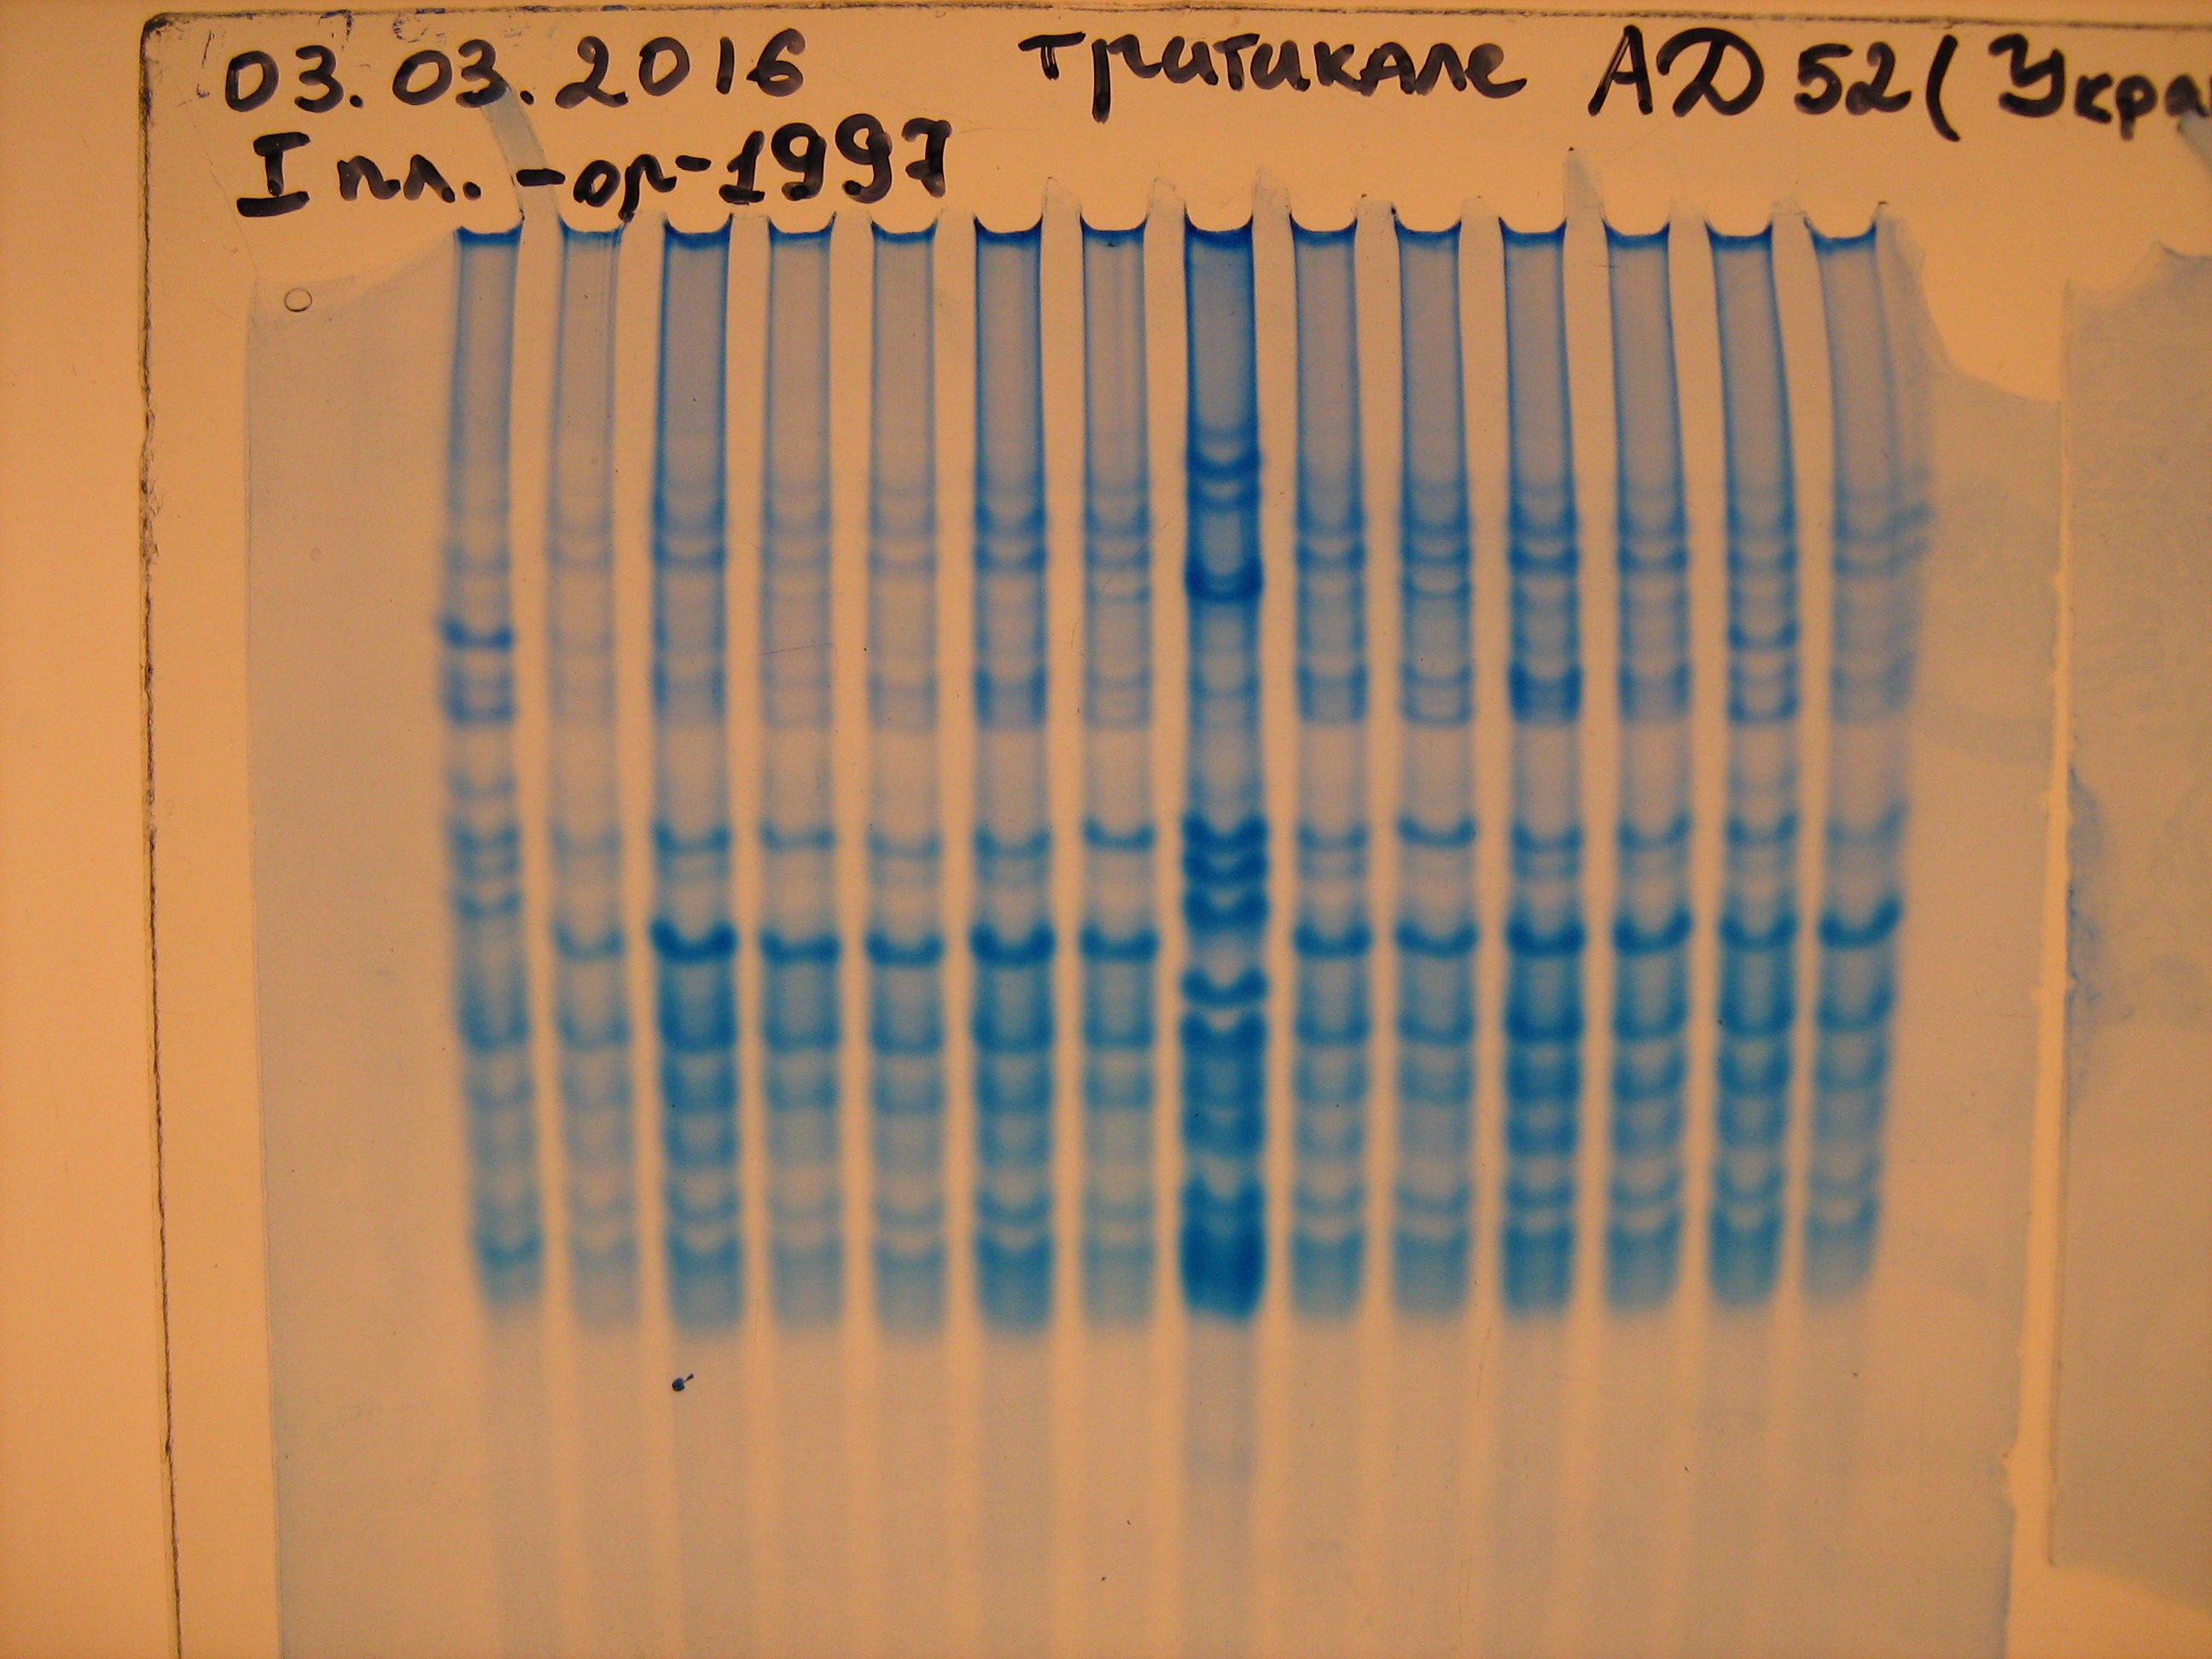 03.03.2016 тритикале АД 52 (Укра
I пл. - ор-1997